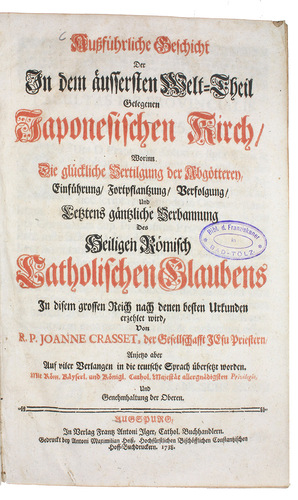 Außführliche Geschicht
Der
In dem äussersten Welt-Theil
Gelegenen
Japonesischen Kirch/
Worinn
Die glückliche Vertilgung der Abgötterey,
Einführung/ Fortpflantzung/ Verfolgung/
Und
Letztens gäntzliche Verbannung
Des
Heiligen Römisch
Catholischen Glaubens
In disem grossen Reich nach denen besten Urkunden
erzehlet wird,
Von
R. P. JOANNE CRASSET, der Gesellschafft JEsu Priestern,
Anjetzo aber
Auf viler Verlangen in die teutsche Sprach übersetzt worden.
Mit Röm. Käyserl. und Königl. Cathol. Majestät allergnädigsten Privilegio,
Und
Genehmhaltung der Oberen.
AUGSPURG,
In Verlag Frantz Antoni Ilger, Cathol. Buchhandlern.
Gedruckt bey Antoni Maximilian Heiß, Hochfürstlichen Bischöfflichen Constantzischen
Hoff-Buchdruckern. 1738.
Bibl. d. Franziskaner
in
BAD-TÖLZ